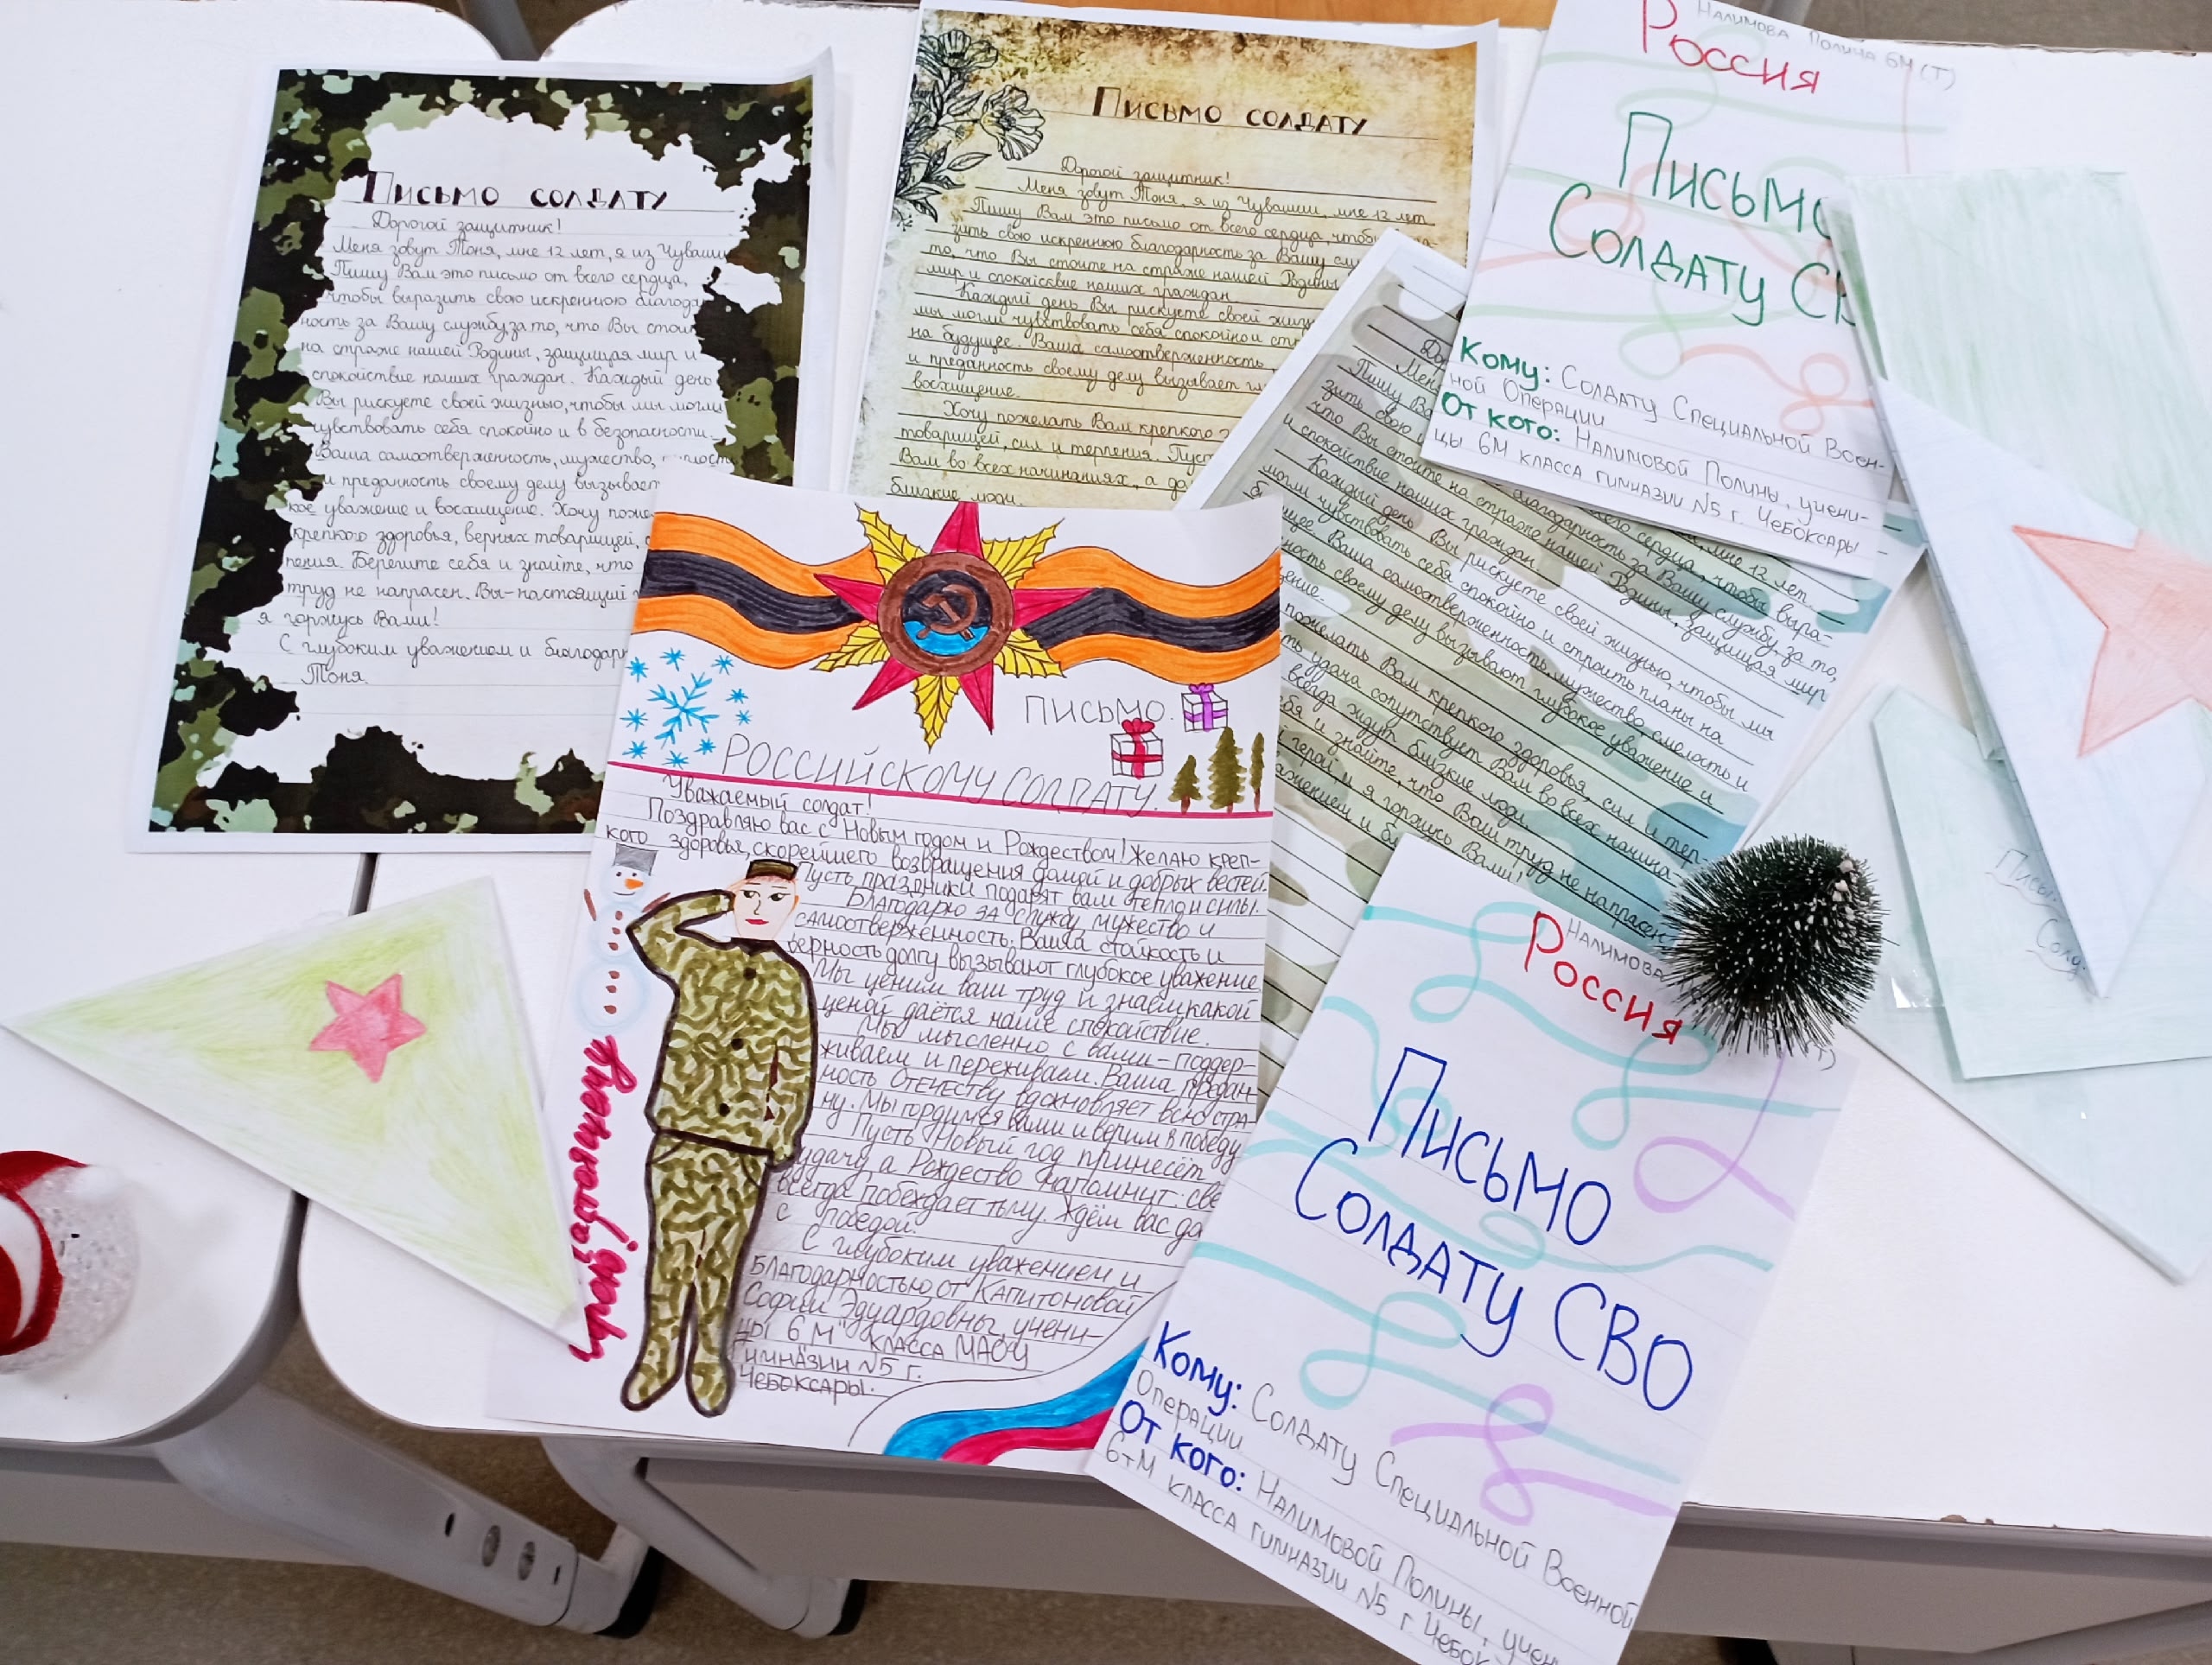 Письмо солдату
Дорогой защитник!
Меня зовут Тоня, мне 12 лет, я из
Пишу Вам это письмо от всего сердца,
чтобы выразить свою искреннюю
ность за Вашу службу, за то, что Вы
на страже нашей Родины, защищая мир и
спокойствие наших граждан. Каждый день
Вы рискуете своей жизнью, чтобы мы могли
чувствовать себя спокойно и в безопасности.
Ваша самоотверженность, мужество,
и преданность своему делу вызывает
кое уважение и восхищение. Хочу
крепкого здоровья, верных товарищей,
пения. Берегите себя и знайте, что
труд не напрасен. Вы-настоящий
я горжусь Вами!
С глубоким уважением и
Тоня.
Письмо солдату
Дорогой защитник!
Меня зовут Тоня, я из Чувашии, мне 12 лет.
Пишу Вам это письмо от всего сердца, чтобы
зить свою искреннюю благодарность за Вашу
то, что Вы стоите на страже нашей Родины
мир и спокойствие наших граждан.
Каждый день Вы рискуете своей
мы могли чувствовать себя спокойно и
на будущее. Ваша самоотверженность,
и преданность своему делу вызывает
восхищение.
Хочу пожелать Вам крепкого
товарищей, сил и терпения.
Вам во всех начинаниях, а
близкие люди.
Россия
Налимова Полина 6М(Т)
Письмо
Солдату
Кому: Солдату Специальной Воен-
ной Операции
От кого: Налимовой Полины, учени-
цы 6М класса гимназии №5 г. Чебоксары
мне 12 лет.
Пишу сердца, чтобы выра-
зить свою благодарность за Вашу службу, за то,
что Вы стоите на страже нашей Родины, защищая мир
и спокойствие наших граждан.
Каждый день Вы рискуете своей жизнью, чтобы мы
могли чувствовать себя спокойно и строить планы на
Ваша самоотверженность, мужество, смелость и
своему делу вызывают глубокое уважение и
пожелать Вам крепкого здоровья, сил и тер-
удача сопутствует Вам во всех начина-
всегда ждут близкие люди.
и знайте, что Ваш труд не напрасен
герой, и я горжусь Вами!
ПИСЬМО
РОССИЙСКОМУ СОЛДАТУ.
Уважаемый солдат!
Поздравляю вас с Новым годом и Рождеством! Желаю креп-
кого здоровья, скорейшего возвращения домой и добрых вестей.
Пусть праздники подарят вам тепло и силы.
Благодарю за службу, мужество и
самоотверженность. Ваша стойкость и
верность долгу вызывают глубокое уважение
Мы ценим ваш труд и знаем какой
ценой даётся наше спокойствие.
Мы мысленно с вами - поддер-
живаем и переживаем. Ваша предан-
ность Отечеству вдохновляет всю стра-
ну. Мы гордимся вами и верим в победу
Пусть Новый год принесёт
удачу, а Рождество напомнит:
всегда побеждает тьму. Ждём вас
с победой.
С глубоким уважением и
благодарностью от Капитоновой
Софии Эдуардовны, учени-
цы 6"М" класса МАОУ
Гимназии №5 г.
Чебоксары.
Россия
Налимова
(Т)
Письмо
Солдату СВО
Кому: Солдату Специальной Военной
Операции
От кого: Налимовой Полины,
класса гимназии №5 г